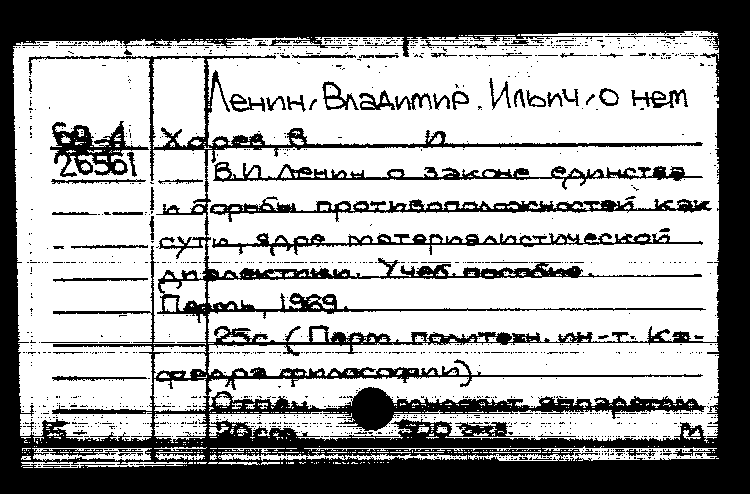 Ленин, Владимир Ильич, о нем
69-4 Харев, В И
26561
В.И. Ленин о законе единства
и борьбы противоположностей как
сути, ядре материалистической
диалектики. Учеб. пособие.
Пермь, 1969.
25с. (Перм. политехн. ин-т. Ка-
федра философии).
Отпеч. аппаратом
20см. 500 экз. м